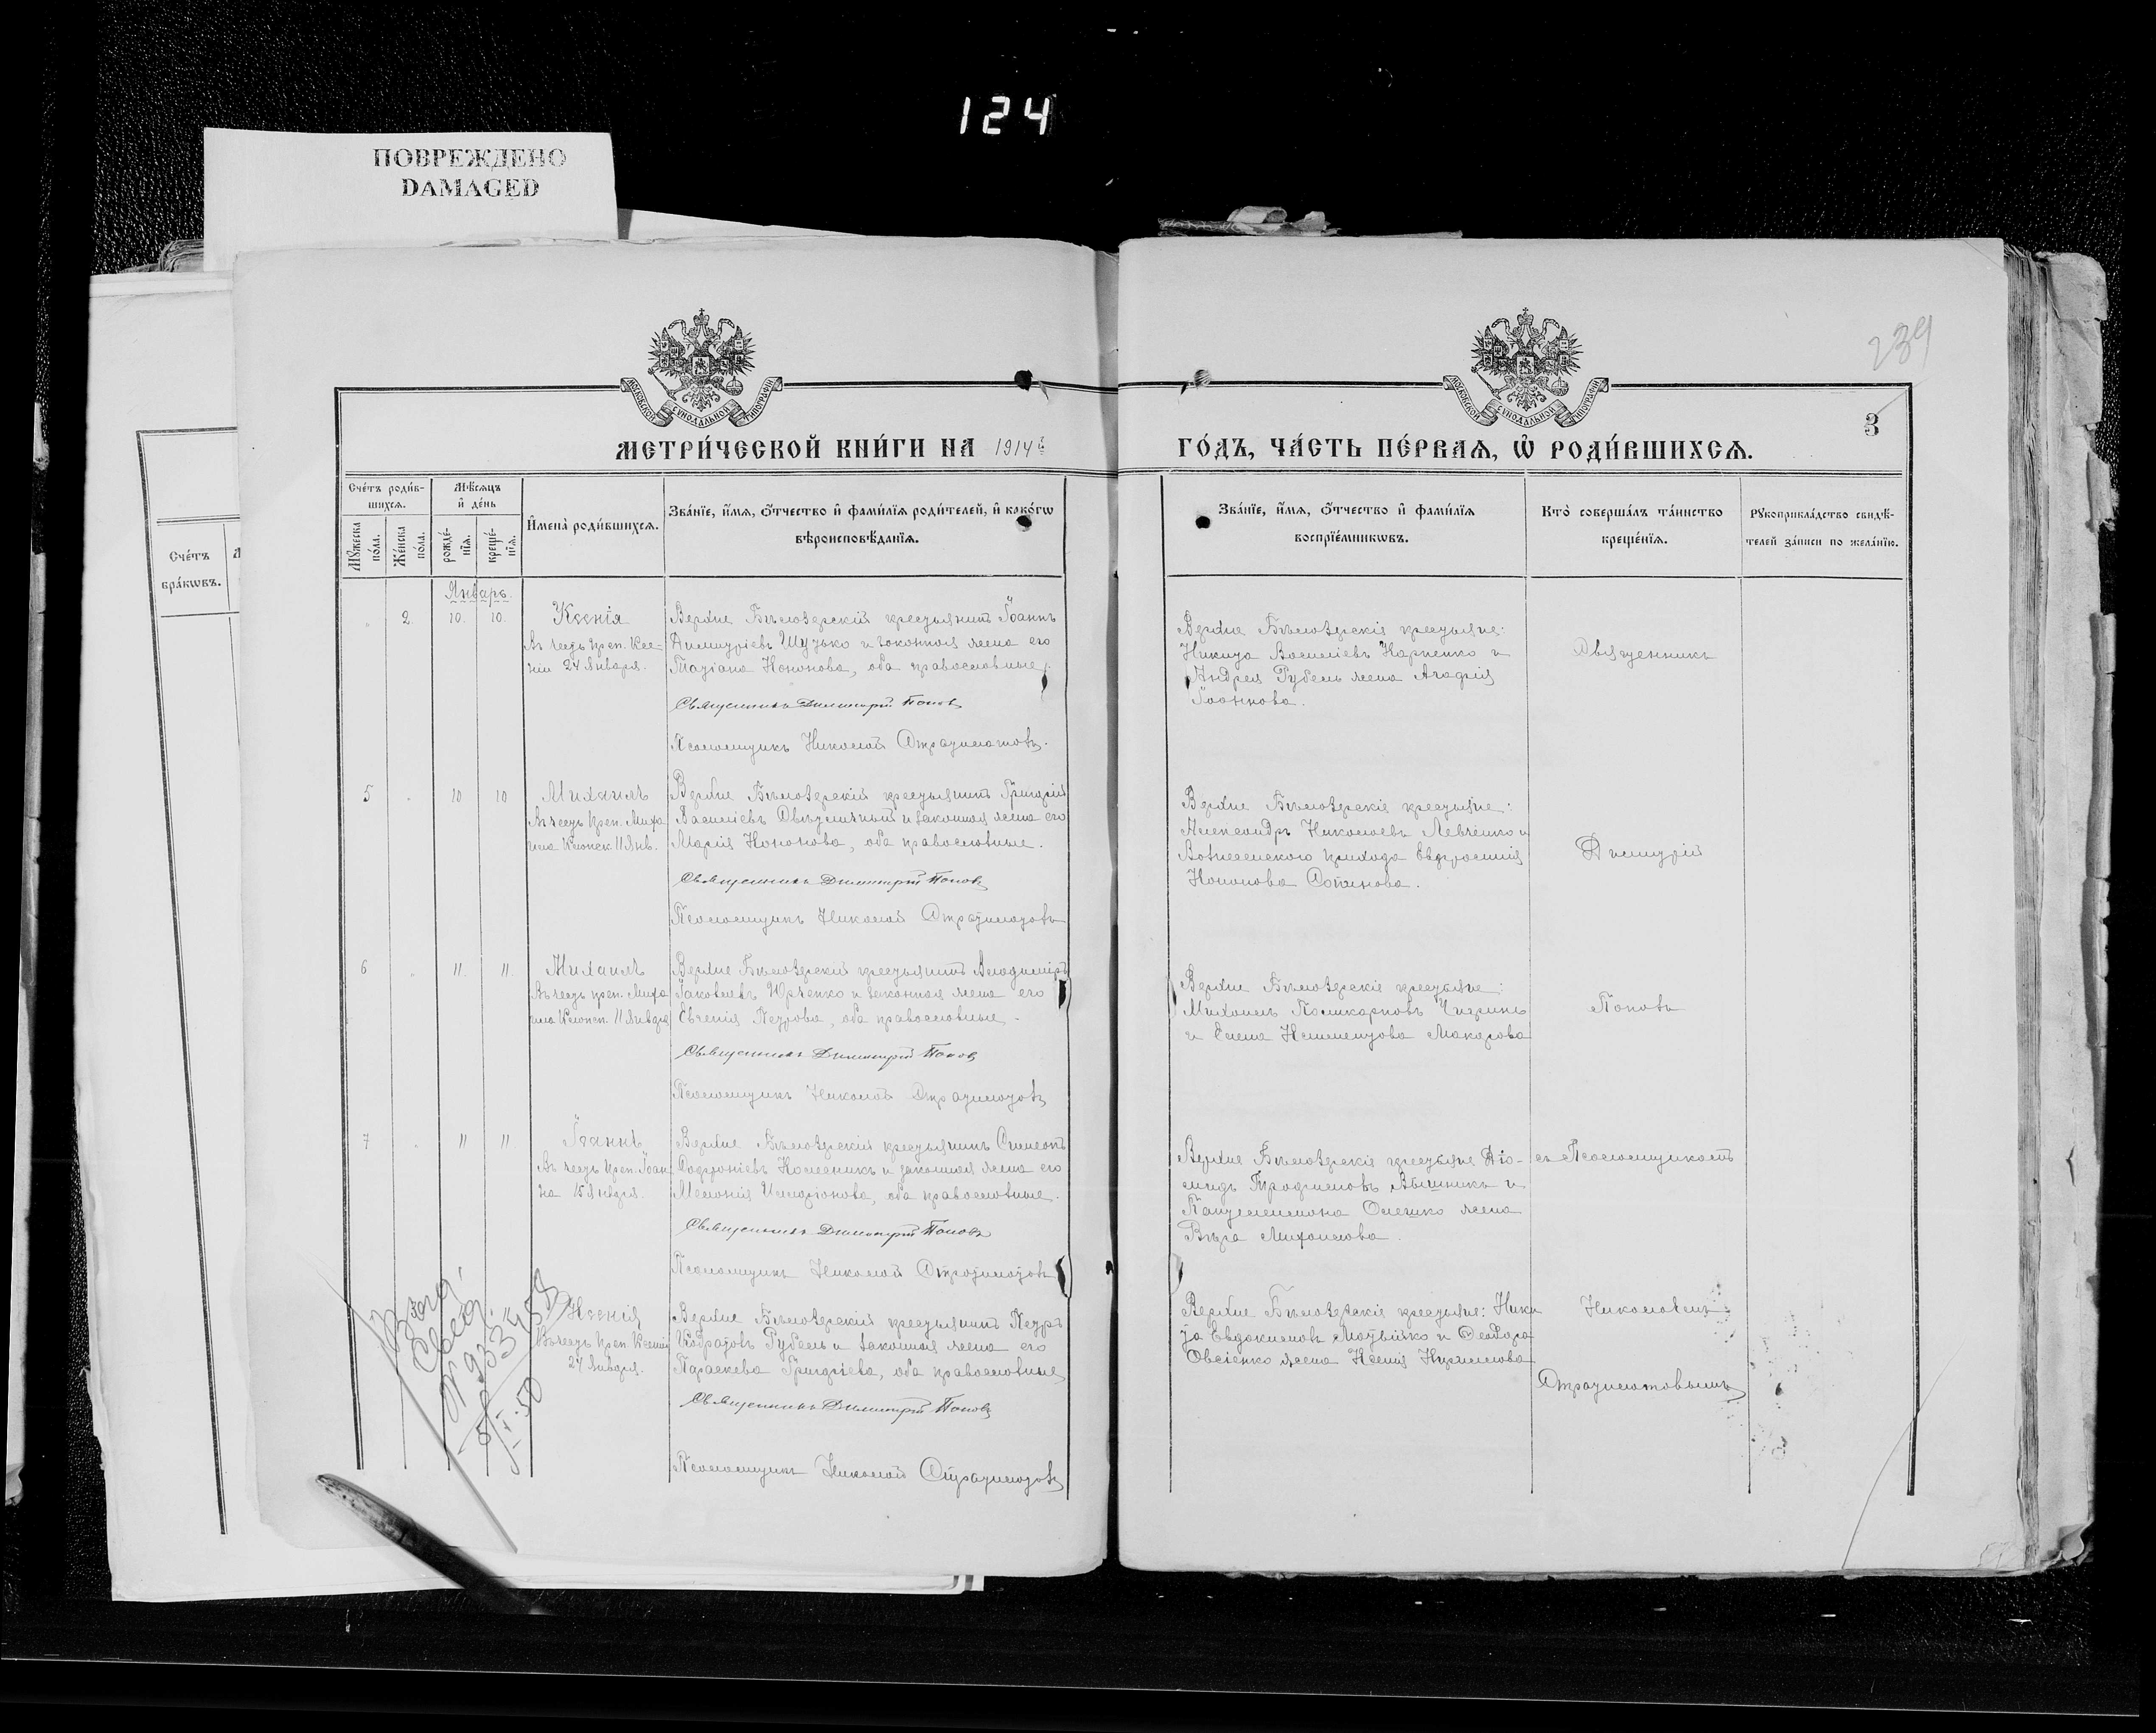 124
ПОВРЕЖДЕНО
DAMAGED
239
3
МОСКОВСКОЙ СѴНОДАЛЬНОЙ ТИПОГРАФІИ
МОСКОВСКОЙ СѴНОДАЛЬНОЙ ТИПОГРАФІИ
МЕТРИ́ЧЕСКОЙ КНИ́ГИ НА 1914й ГО́ДЪ, ЧА́СТЬ ПЕ́РВАѦ, Ѡ РОДИ́ВШИХСѦ.
Сче́тъ
бра́кѡвъ.
Сче́тъ роди́в-
шихсѧ.
Мѣ́сѧцъ
и҆ де́нь
Мꙋ́жеска по́ла.
Же́нска по́ла.
рожде́-
нїѧ.
креще́-
нїѧ.
И҆мена̀ роди́вшихсѧ.
Зва́нїе, и҆́мѧ, ѻ҆́тчество и҆ фами́лїѧ роди́телей, и҆ како́гѡ
вѣроисповѣ́данїѧ.
Зва́нїе, и҆́мѧ, ѻ҆́тчество и҆ фами́лїѧ
воспрїе́мникѡвъ.
Кто̀ соверша́лъ та́инство
креще́нїѧ.
Рꙋкоприкла́дство свидѣ́-
телей за́писи по жела́нїю.
Январь.
" 2. 10. 10. Ксенія
Въ честь преп. Ксе-
ніи 24 Января.
Верхне Бѣлозерскій крестьянинъ Іоаннъ
Димитріевъ Шузько и законная жена его
Татіана Кононова, оба православные.
Священникъ Димитрій Поповъ
Псаломщикъ Николай Стратилатовъ.
Верхне Бѣлозерскіе крестьяне:
Никита Василіевъ Карпенко и
Андрея Рубель жена Агафія
Іоаннова.
Священникъ
5 " 10 10 Михаилъ
Въ честь преп. Миха
ила Клопск. 11 Янв.
Верхне Бѣлозерскій крестьянинъ Григорій
Василіевъ и законная жена его
Марія Кононова, оба православные.
Священникъ Димитрій Поповъ
Псаломщикъ Николай Стратилатовъ
Верхне Бѣлозерскіе крестьяне:
Александръ Николаевъ Левченко и
Вознесенского прихода Евфросинія
Кононова
Димитрій
6 " 11. 11. Михаилъ
Въ честь преп. Миха
ила Клопск. 11 Января
Верхне Бѣлозерскій крестьянинъ Владиміръ
Іаковлевъ Юрченко и законная жена его
Евгенія Петрова, оба православные.
Священникъ Димитрій Поповъ
Псаломщикъ Николай Стратилатовъ
Верхне Бѣлозерскіе крестьяне:
Михаилъ Поликарповъ Чигринъ
и Елена Климентова Макарова
Поповъ
7 " 11 11 Іоаннъ
Въ честь преп. Іоан
на 15 Января.
Верхне Бѣлозерскій крестьянинъ Симеонъ
Софроніевъ Колесникъ и законная жена его
Меланія Иларіонова, оба православные.
Священникъ Димитрій Поповъ
Псаломщикъ Николай Стратилатовъ
Верхне Бѣлозерскіе крестьяне Діо-
мидъ Трофимовъ Вышникъ и
Пантелеимона Олешко жена
Вѣра Михаилова.
съ Псаломщикомъ
Ксенія
Въ честь преп. Ксеніи
24 Января.
Верхне Бѣлозерскій крестьянинъ Петръ
Кодратовъ Рубель и законная жена его
Параскева Григоріева, оба православные
Священникъ Димитрій Поповъ
Псаломщикъ Николай Стратилатовъ
Верхне Бѣлозерскіе крестьяне: Ники
та Евдокимовъ Матвійко и Ѳеодора
Овсіенко жена Ксенія Кириллова
Николаемъ
Стратилатовымъ